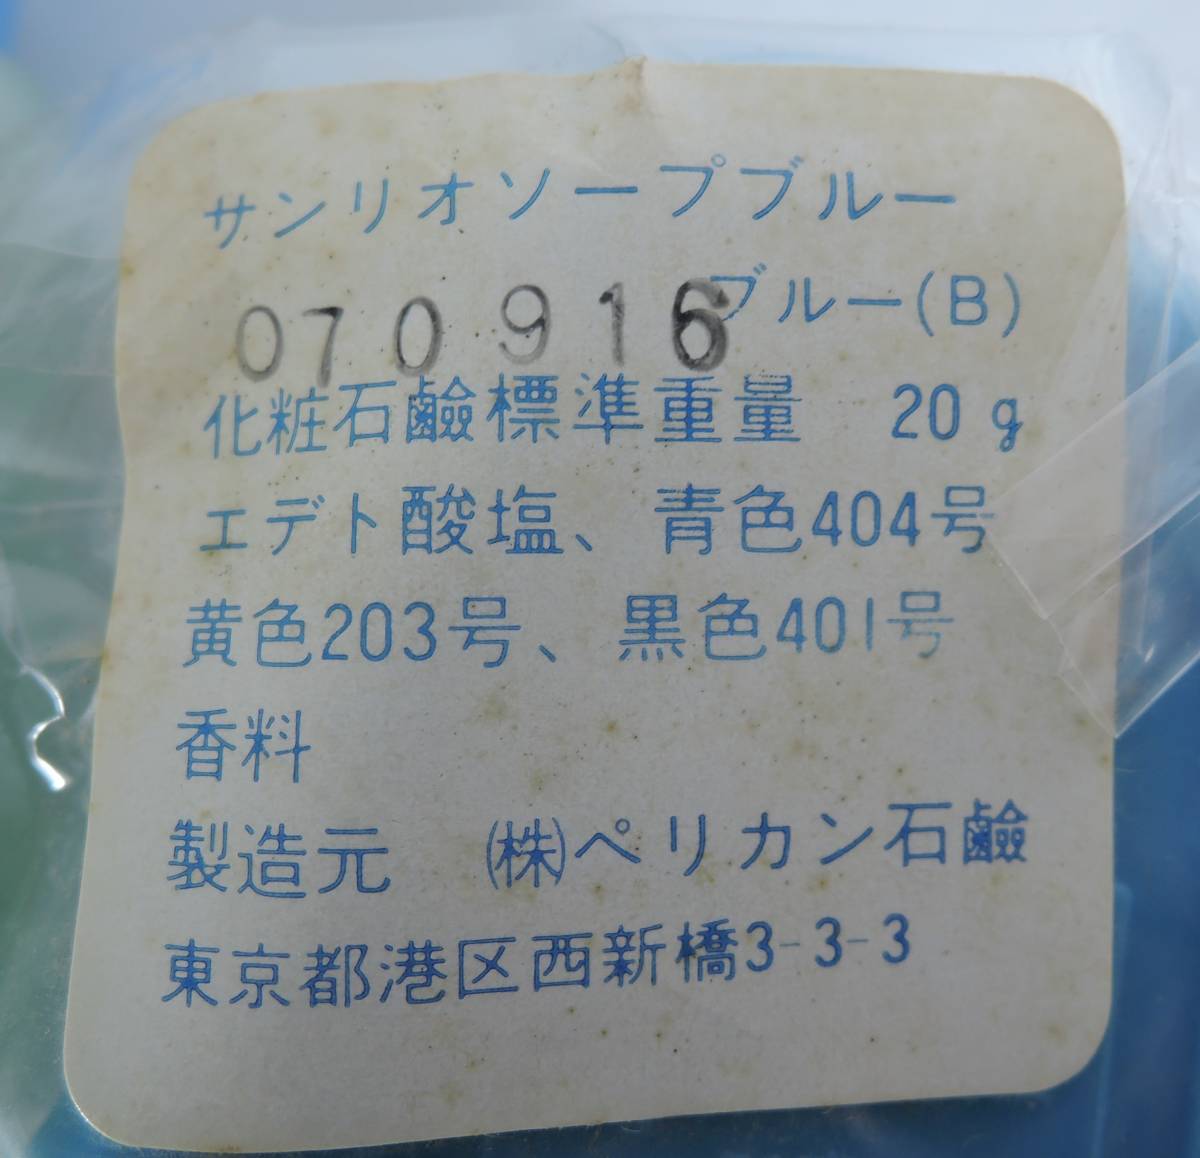 サンリオソープブルー
ブルー(B)
070916
化粧石鹸標準重量　20g
エデト酸塩、青色404号
黄色203号、黒色401号
香料
製造元　(株)ペリカン石鹸
東京都港区西新橋3-3-3